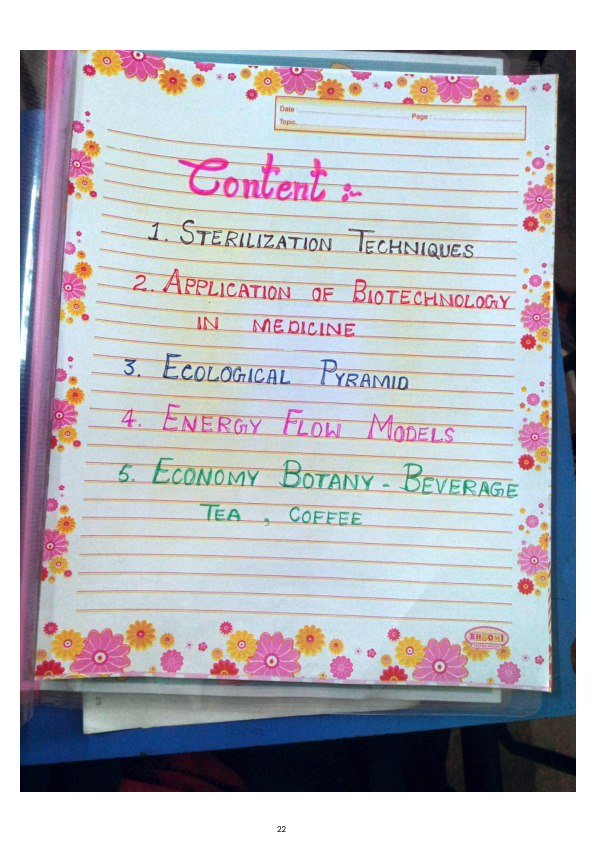 Date :
Page :
Topic
Content :-
1. STERILIZATION TECHNIQUES
2. APPLICATION OF BIOTECHNOLOGY
IN MEDICINE
3. ECOLOGICAL PYRAMID
4. ENERGY FLOW MODELS
5. ECONOMY BOTANY - BEVERAGE
TEA , COFFEE
BHOOMI
22